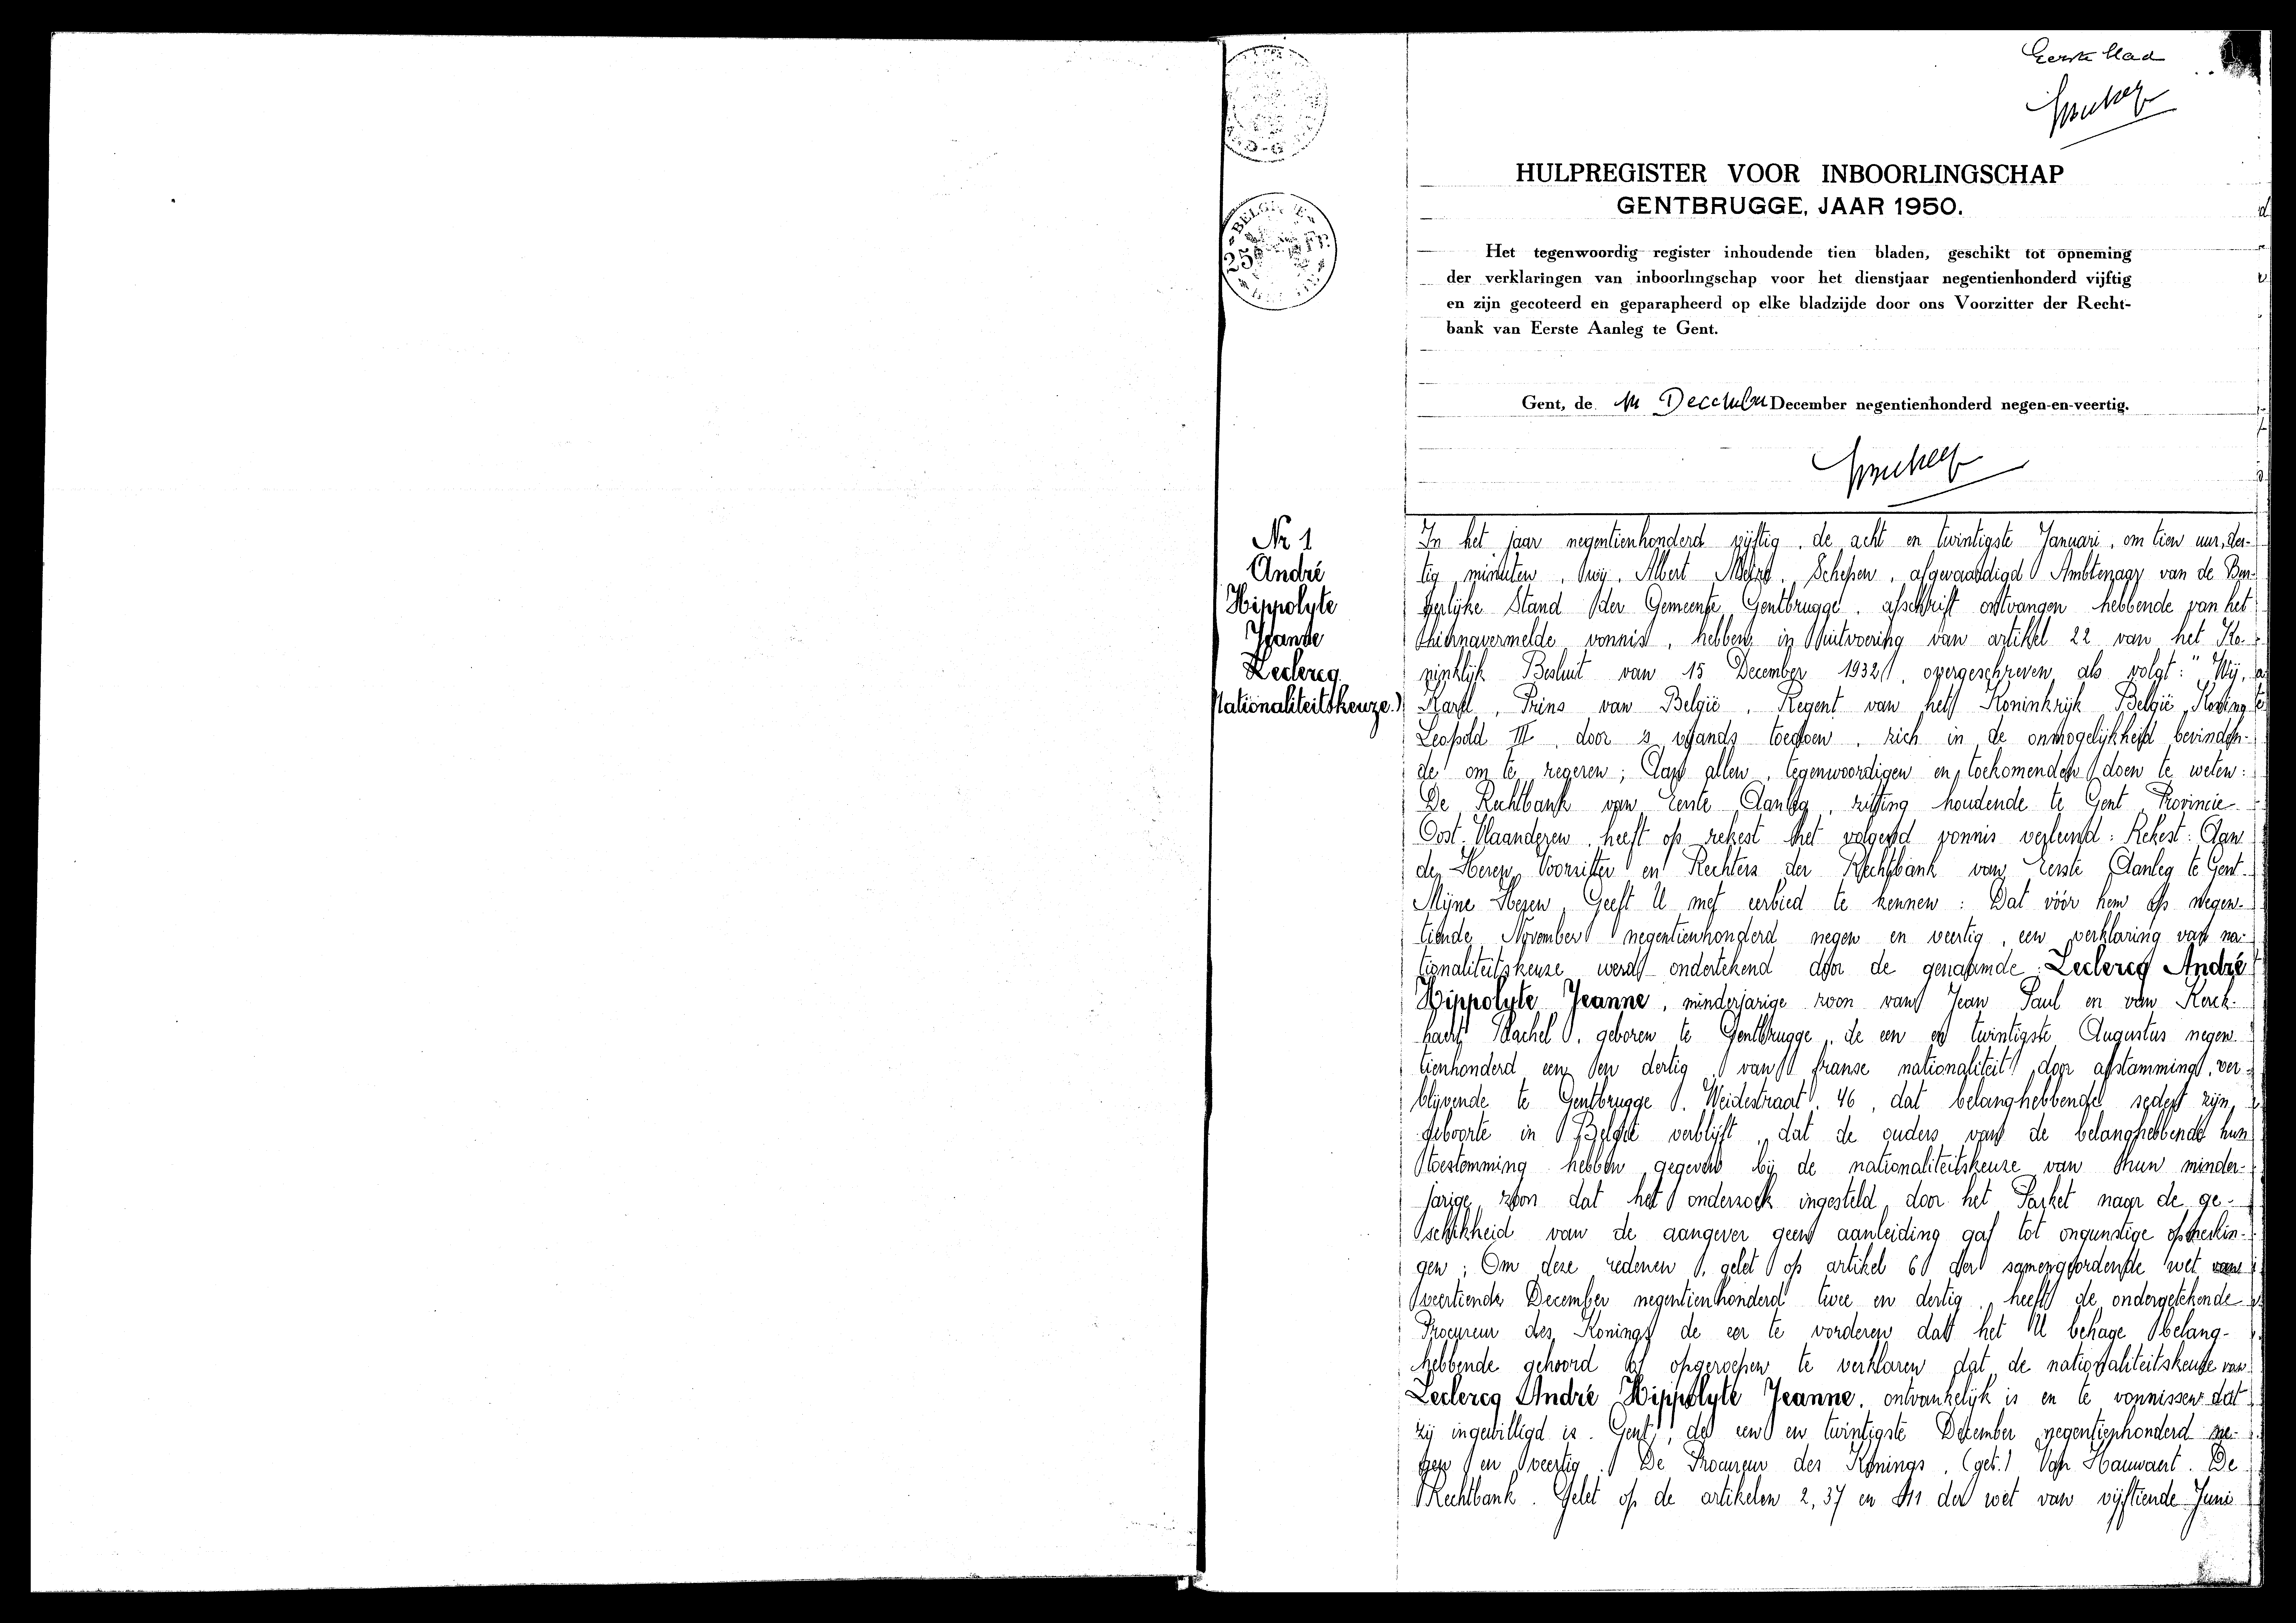 Eerste blad
HULPREGISTER VOOR INBOORLINGSCHAP
GENTBRUGGE, JAAR 1950.
Het tegenwoordig register inhoudende tien bladen, geschikt tot opneming
der verklaringen van inboorlingschap voor het dienstjaar negentienhonderd vijftig
en zijn gecoteerd en geparapheerd op elke bladzijde door ons Voorzitter der Recht-
bank van Eerste Aanleg te Gent.
Gent, de December December negentienhonderd negen-en-veertig.
BELGIE
25 FR.
Nr 1
André
Hippolyte
Jeanne
Leclercq
Nationaliteitskeuze.)
In het jaar negentienhonderd vijftig, de acht en twintigste Januari, om tien uur, der-
tig minuten, wij, Albert Schepen, afgevaardigd Ambtenaar van de Bur-
gerlijke Stand der Gemeente Gentbrugge, afschrift ontvangen hebbende van het
hiernavermelde vonnis, hebben in uitvoering van artikel 22 van het Ko-
ninklijk Besluit van 15 December 1932, overgeschreven als volgt: " Wij,
Karel, Prins van België, Regent van het Koninkrijk België, Koning
Leopold III, door 's vijands toedoen, zich in de onmogelijkheid bevinden-
de om te regeren; Aan allen, tegenwoordigen en toekomenden doen te weten:
De Rechtbank van Eerste Aanleg, zitting houdende te Gent, Provincie
Oost-Vlaanderen, heeft op rekest het volgend vonnis verleend: Rekest: Aan
de Heren Voorzitter en Rechters der Rechtbank van Eerste Aanleg te Gent.
Mijne Heren, Geeft U met eerbied te kennen: Dat vóór hem op negen-
tiende November negentienhonderd negen en veertig, een verklaring van na-
tionaliteitskeuze werd ondertekend door de genaamde Leclercq André
Hippolyte Jeanne, minderjarige zoon van Jean Paul en van Kerck-
haert Rachel, geboren te Gentbrugge, de een en twintigste Augustus negen-
tienhonderd een en dertig, van franse nationaliteit door afstamming, ver-
blijvende te Gentbrugge, Weidestraat, 46, dat belanghebbende sedert zijn
geboorte in België verblijft, dat de ouders van de belanghebbende hun
toestemming hebben gegeven bij de nationaliteitskeuze van hun minder-
jarige zoon dat het onderzoek ingesteld door het Parket naar de ge-
schiktheid van de aangever geen aanleiding gaf tot ongunstige opmerkin-
gen; Om deze redenen, gelet op artikel 6 der samengeordende wet van
veertiende December negentienhonderd twee en dertig, heeft de ondergetekende
Procureur des Konings de eer te vorderen dat het U behage belang-
hebbende gehoord of opgeroepen te verklaren dat de nationaliteitskeuze van
Leclercq André Hippolyte Jeanne, ontvankelijk is en te vonnissen dat
zij ingewilligd is. Gent, de een en twintigste December negentienhonderd ne-
gen en veertig. De Procureur des Konings, (get.) Van Hauwaert. De
Rechtbank. Gelet op de artikelen 2, 37 en 41 der wet van vijftiende Juni